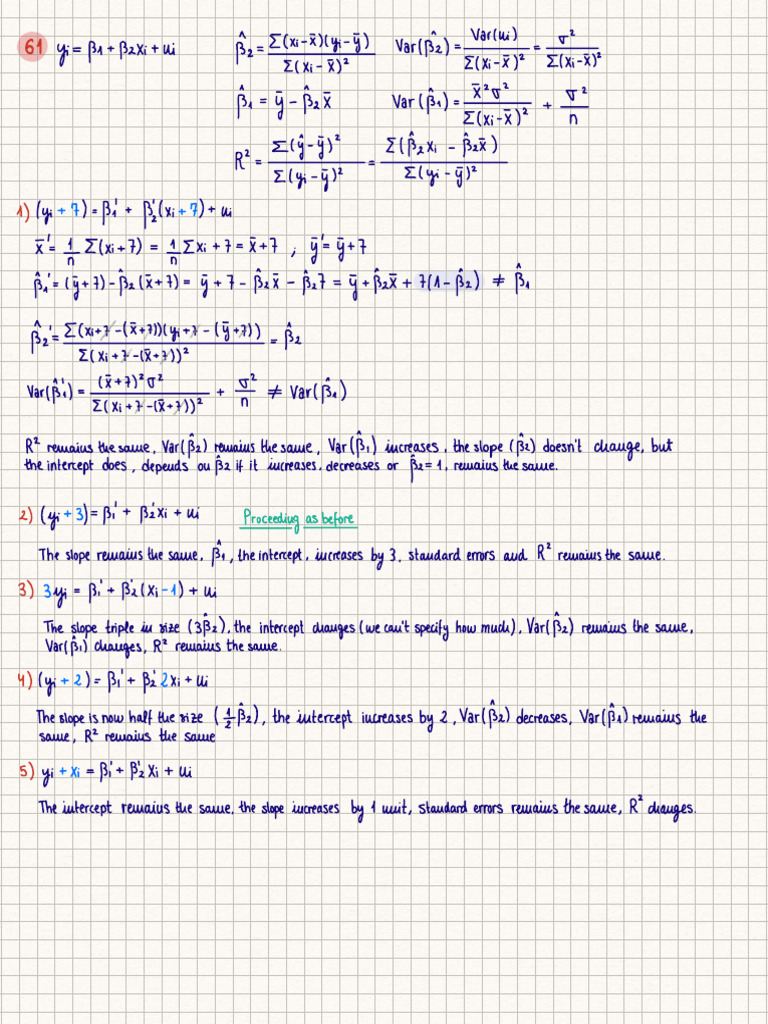 61 yᵢ = β₁ + β₂xᵢ + uᵢ   β̂₂ = Σ(xᵢ-x̄)(yᵢ-ȳ) / Σ(xᵢ-x̄)²   Var(β̂₂) = Var(uᵢ) / Σ(xᵢ-x̄)² = σ² / Σ(xᵢ-x̄)²
β̂₁ = ȳ - β̂₂x̄   Var(β̂₁) = x̄²σ² / Σ(xᵢ-x̄)² + σ²/n
R² = Σ(ŷ-ȳ)² / Σ(yᵢ-ȳ)² = Σ(β̂₂xᵢ - β̂₂x̄) / Σ(yᵢ-ȳ)²
1) (yᵢ + 7) = β₁' + β₂'(xᵢ + 7) + uᵢ
x̄' = 1/n Σ(xᵢ+7) = 1/n Σxᵢ + 7 = x̄ + 7 ; ȳ' = ȳ + 7
β̂₁' = (ȳ+7) - β̂₂(x̄+7) = ȳ + 7 - β̂₂x̄ - β̂₂7 = ȳ + β̂₂x̄ + 7(1-β̂₂) ≠ β̂₁
β̂₂' = Σ(xᵢ+7-(x̄+7))(yᵢ+7-(ȳ+7)) / Σ(xᵢ+7-(x̄+7))² = β̂₂
Var(β̂₁') = (x̄+7)²σ² / Σ(xᵢ+7-(x̄+7))² + σ²/n ≠ Var(β̂₁)
R² remains the same, Var(β̂₂) remains the same, Var(β̂₁) increases, the slope (β̂₂) doesn't change, but
the intercept does, depends on β̂₂ if it increases, decreases or β̂₂=1, remains the same.
2) (yᵢ + 3) = β₁' + β₂'xᵢ + uᵢ   Proceeding as before
The slope remains the same, β̂₁, the intercept, increases by 3, standard errors and R² remains the same.
3) 3yᵢ = β₁' + β₂'(xᵢ-1) + uᵢ
The slope triple in size (3β̂₂), the intercept changes (we can't specify how much), Var(β̂₂) remains the same,
Var(β̂₁) changes, R² remains the same.
4) (yᵢ + 2) = β₁' + β₂'2xᵢ + uᵢ
The slope is now half the size (1/2 β̂₂), the intercept increases by 2, Var(β̂₂) decreases, Var(β̂₁) remains the
same, R² remains the same
5) yᵢ + xᵢ = β₁' + β₂'xᵢ + uᵢ
The intercept remains the same, the slope increases by 1 unit, standard errors remains the same, R² changes.